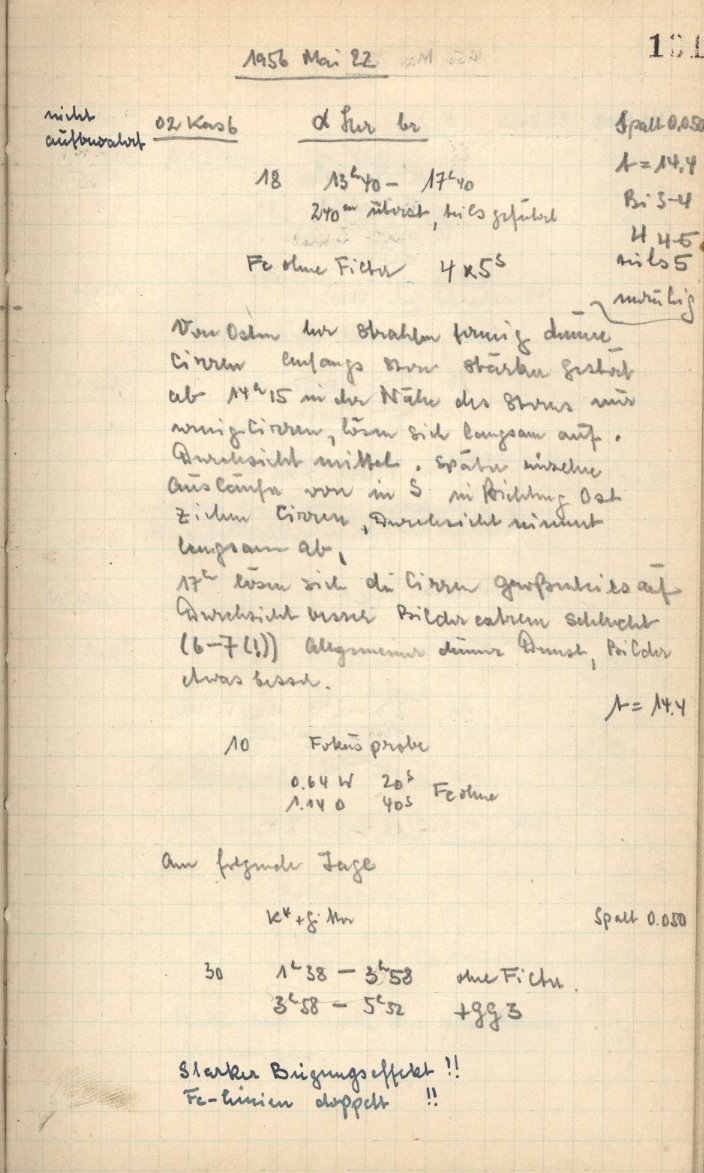 1956 Mai 22
nicht
aufbewahrt
02 Kas6
α Lyr br
Spalt 0.050
18 13ʰ40 – 17ʰ40
t = 14.4
240ᵐ teils geführt
Bi 3-4
H 4-5
Fe ohne Filter 4x5ˢ
teils 5
unruhig
Von Osten her strahlenförmig dünne
Cirren anfangs Stern stärker gestört
ab 14ʰ15 in der Nähe des Sterns nur
wenig Cirren, lösen sich langsam auf.
Durchsicht mittel. Später
Ausläufer von in S in Richtung Ost
ziehen Cirren, Durchsicht nimmt
langsam ab,
17ʰ lösen sich die Cirren großenteils auf
Durchsicht besser Bilder extrem schlecht
(6-7(!)) Allgemeiner dünner Dunst, Bilder
etwas besser.
t = 14.4
10 Fokusprobe
0.64 W 20ˢ
Fe ohne
1.14 O 40ˢ
Am folgenden Tage
Spalt 0.050
30 1ʰ38 – 3ʰ58 ohne Filter.
3ʰ58 – 5ʰ52 +GG3
Starker Beugungseffekt !!
Fe-Linien doppelt !!